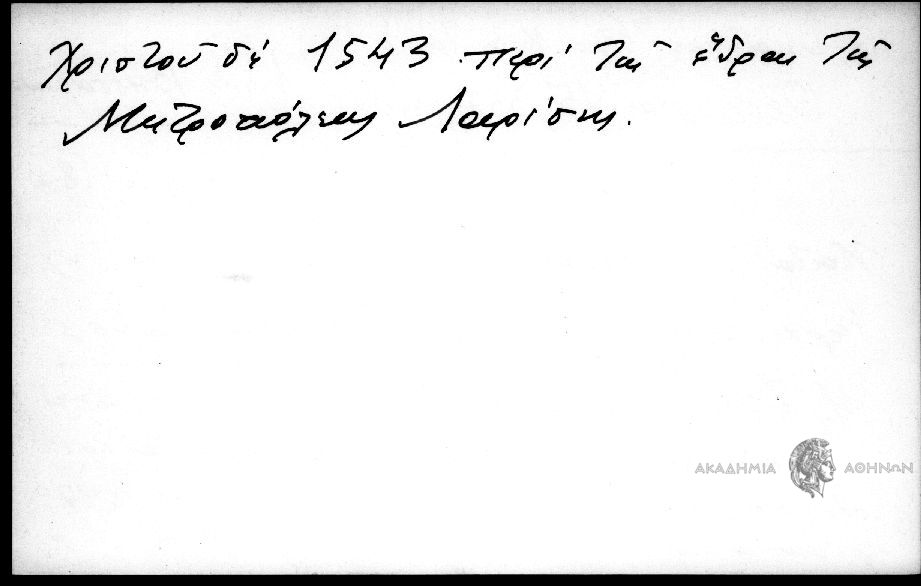 Χριστοῦ δέ 1543 περί τῆς ἕδρας τῆς
Μητροπόλεως Λαρίσης.
ΑΚΑΔΗΜΙΑ ΑΘΗΝΩΝ